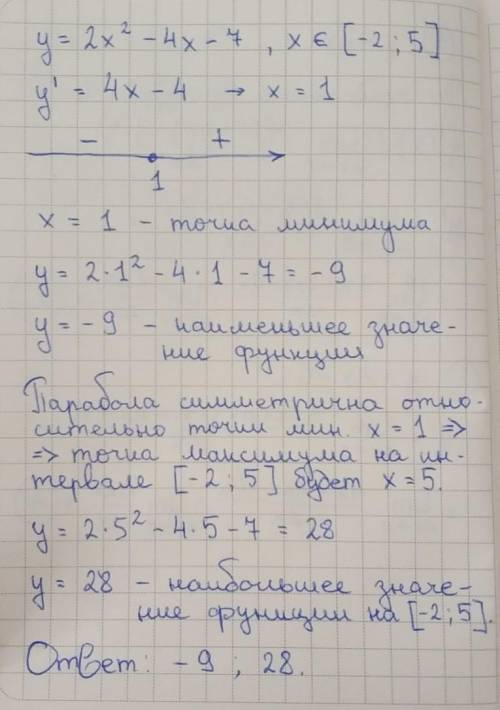 y = 2x² - 4x - 7 , x ∈ [-2; 5]
y' = 4x - 4 → x = 1
- +
1
x = 1 - точка минимума
y = 2·1² - 4·1 - 7 = -9
y = -9 - наименьшее значе-
ние функции
Парабола симметрична отно-
сительно точки мин. x = 1 =>
=> точка максимума на ин-
тервале [-2; 5] будет x = 5.
y = 2·5² - 4·5 - 7 = 28
y = 28 - наибольшее значе-
ние функции на [-2; 5].
Ответ: -9 ; 28.